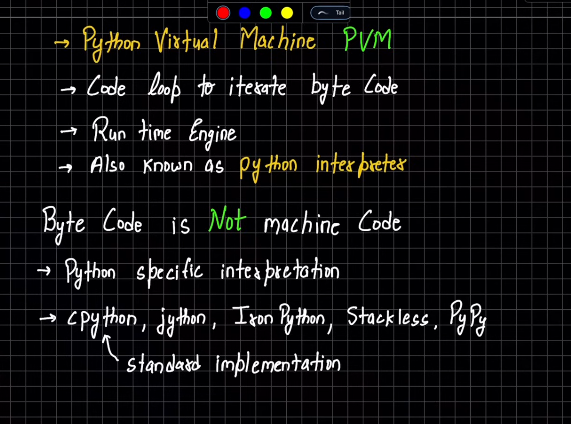 Tail
→ Python Virtual Machine PVM
→ Code loop to iterate byte Code
→ Run time Engine
→ Also known as python interpreter
Byte Code is Not machine Code
→ Python specific interpretation
→ cpython, jython, Iron Python, Stackless, PyPy
standard implementation